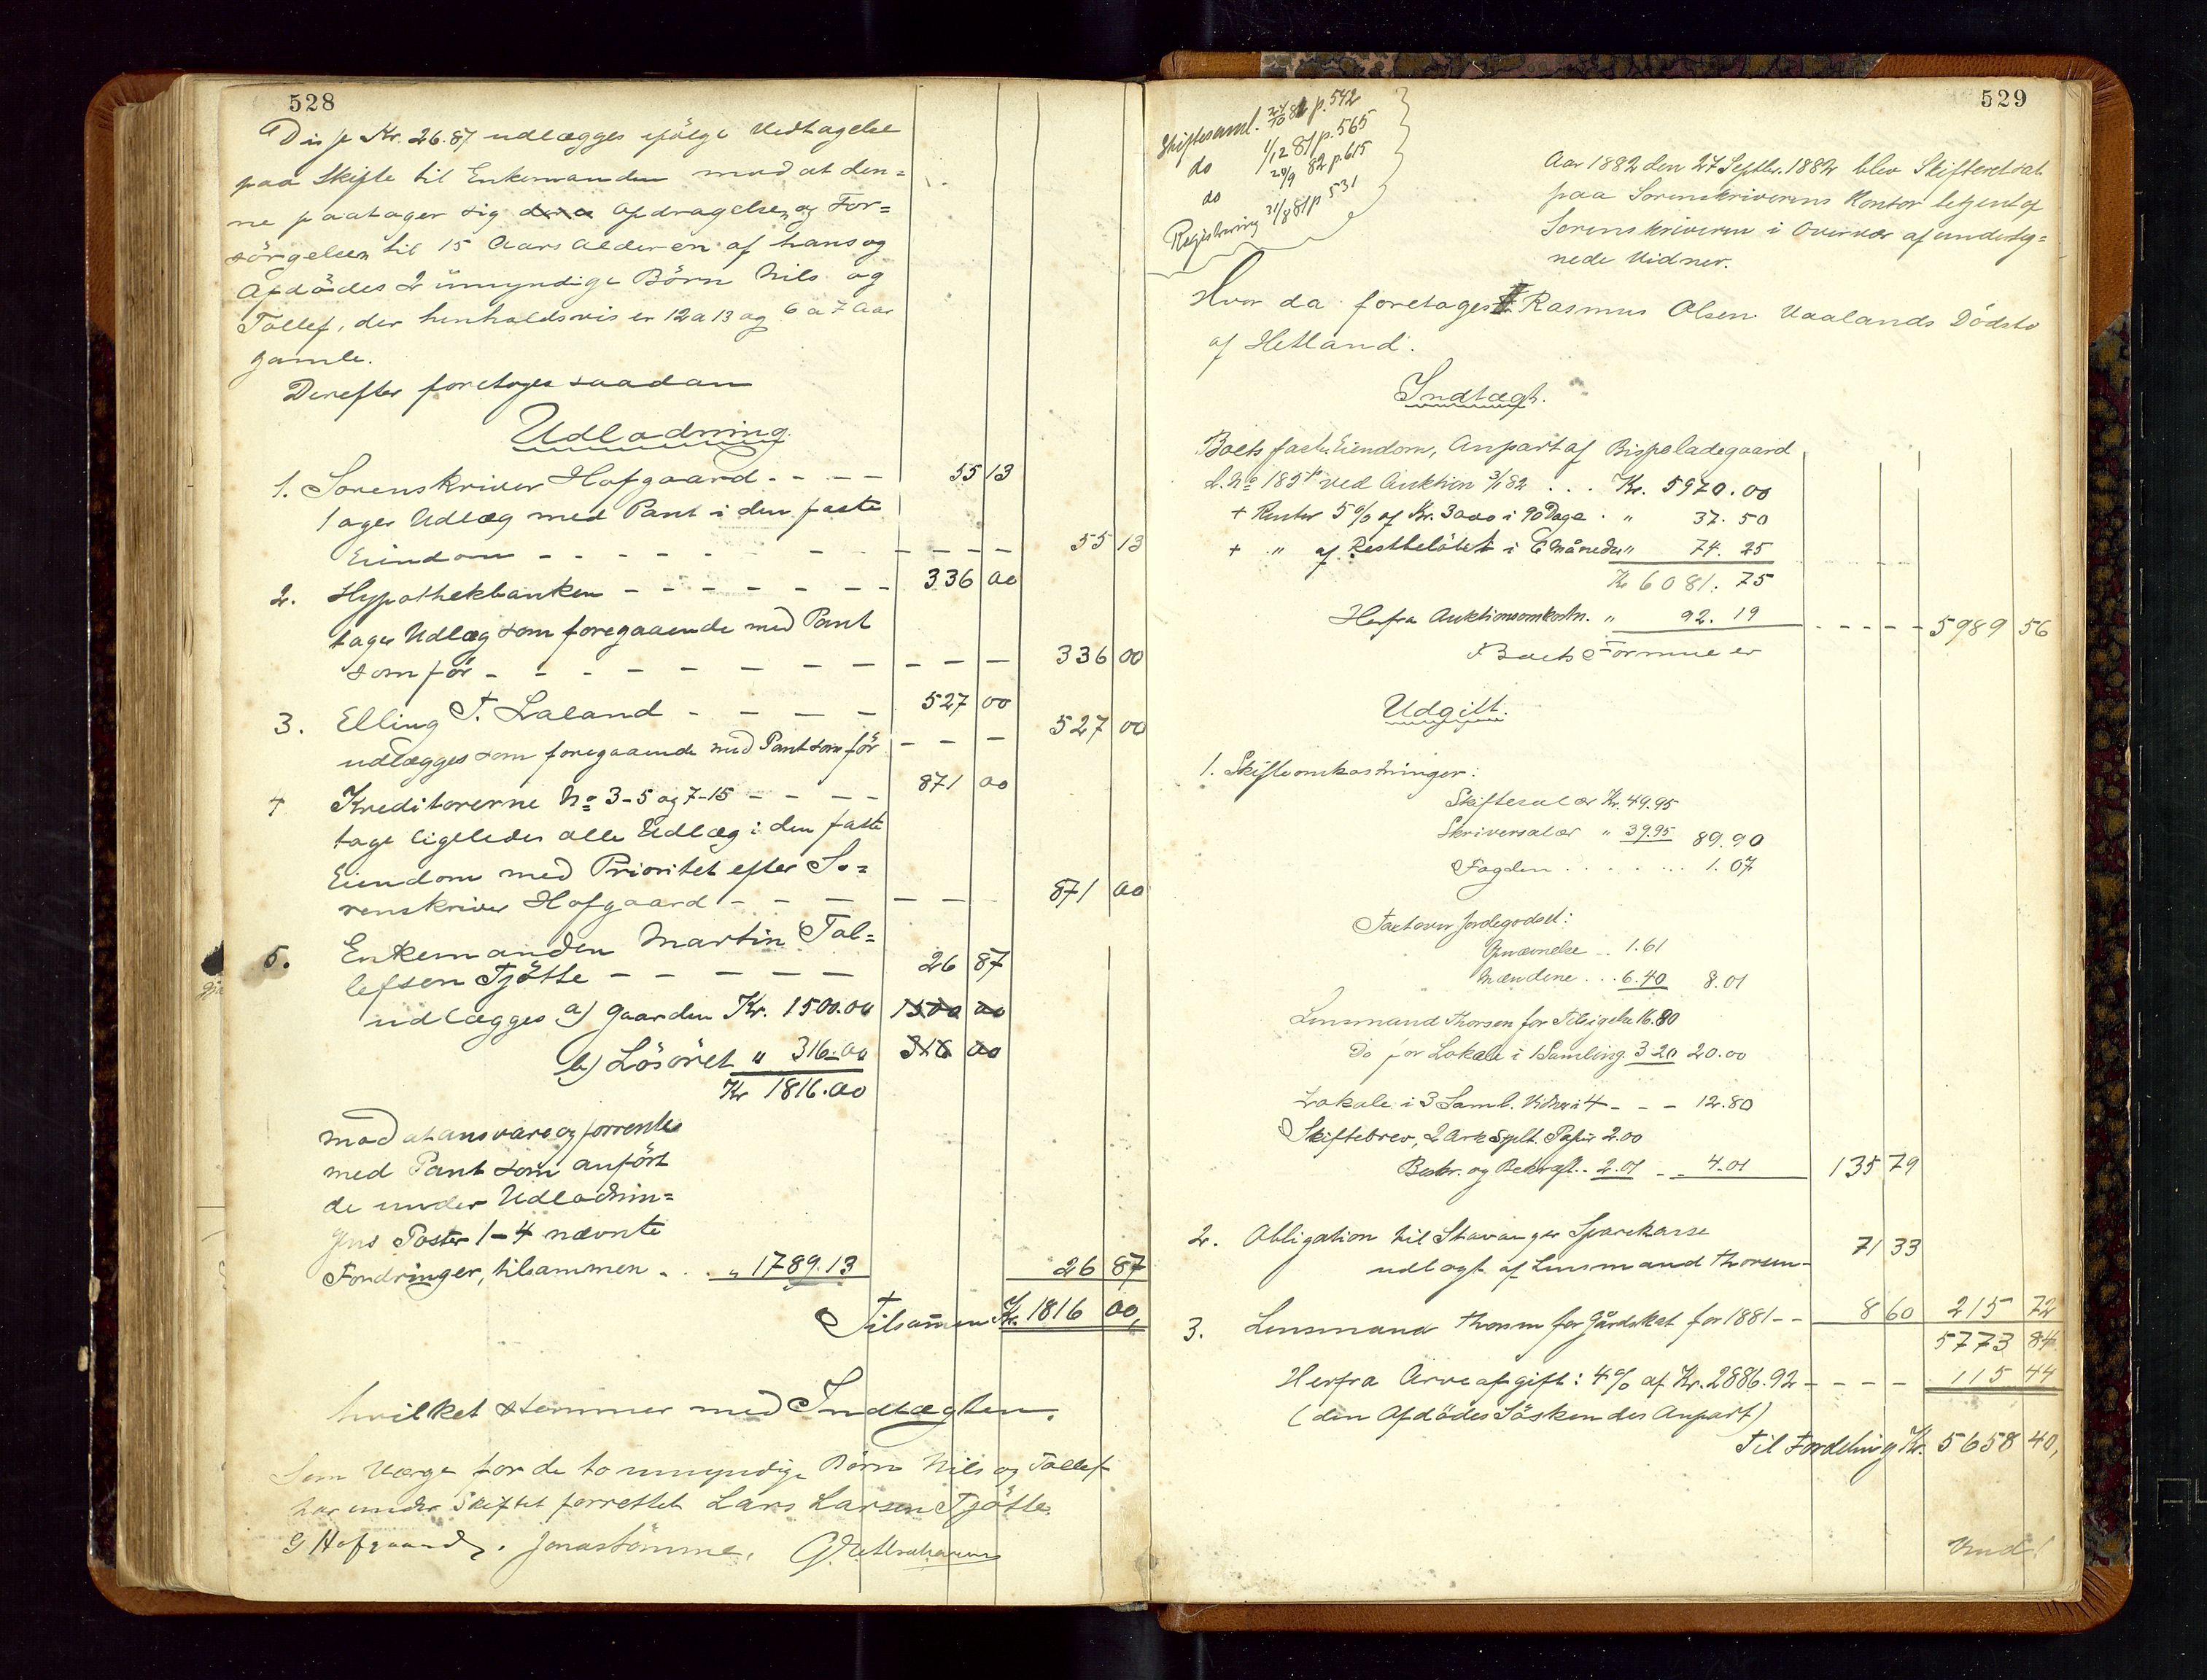 528
Disse Kr. 26.87 udlægges ifölge Vedtagelse
paa Skifte til Enkemanden mod at den=
ne paatager sig Opdragelsen og For=
sörgelsen til 15 Aars Alderen af hans og
Afdödes 2 umyndige Börn Nils og
Tollef, der henholdsvis er 12 a 13 og 6 a 7 Aar
gamle.
Derefter foretoges saadan
Udlodning.
1. Sorenskriver Hofgaard - - - - 55 13
tager Udlæg med Pant i den faste
Eiendom - - - - - - - - - - 55 13
2. Hypothekbanken - - - - - - - 336 00
tager Udlæg som foregaaende med Pant
som för - - - - - - - - - - 336 00
3. Elling T. Laland - - - - - 527 00
udlægges som foregaaende med Pant som för - - - 527 00
4 Kreditorerne No 3-5 og 7-15 - - - - 871 00
tage ligeledes alle Udlæg i den faste
Eiendom med Prioritet efter So=
renskriver Hofgaard - - - - - - 871 00
5. Enkemanden Martin Tol=
lefsen Tjötte - - - - - - 26 87
udlægges a) Gaarden Kr. 1500.00 1500 00
b) Lösöret " 316.00 316 00
Kr 1816.00
mod at ansvare og forrente
med Pant som anfört
de under Udlodnin=
gens Poster 1-4 nævnte
Fordringer, tilsammen . . . " 1789.13 26 87
Tilsammen Kr. 1816 00,
hvilket stemmer med Indtægten.
Som Værge for de to umyndige Börn Nils og Tollef
har under Skiftet forrettet Lars Larsen Tjötte.
G Hofgaard. Jonas Tömme.
529
Skiftesaml. 24/10 81 p. 542
do 1/12 81 p. 565
do 20/9 82 p. 615
Registrering 31/8 81 p 531
Aar 1882 den 27 Septbr. 1882 blev Skifteret sat
paa Sorenskriverens Kontor betjent af
Sorenskriveren i Overvær af underteg=
nede Vidner.
Hvor da foretoges Rasmus Olsen Vaalands Dödsbo
af Hetland.
Indtægt.
Boets faste Eiendom, Anpart af Bispeladegaard
L. No 185 ved Auktion 3/1 82 . . . Kr. 5970.00
+ Renter 5 % af Kr. 3000 i 90 Dage . " 37.50
+ " af Restbelöbet i 6 Måneder " 74.25
Kr 6081.75
Herfra Auktionsomkostn. " 92.19 - - - - - 5989 56
Boets Formue er
Udgift.
1. Skifteomkostninger:
Skiftesalær Kr. 49.95
Skriversalær " 39.95 89.90
Fogden . . . . . . . . 1.07
Taxt over Jordegodset:
Opnævnelse .. 1.61
Mændene ... 6.40 8.01
Lensmand Thorsen for Tilsigelse 16.80
Do for Lokale i 1 Samling 3.20 20.00
Lokale i 3 Saml. Vidner i 4 - - - 12.80
Skiftebrev, 2 Ark Splt. Papir 2.00
Beskr. og Bekræft. . 2.01 - - 4.01 135 79
2. Obligation til Stavanger Sparekasse
udlagt af Lensmand Thorsen - 71 33
3. Lensmand Thorsen for Gårdskat for 1881 - - 8 60 215 72
5773 84
Herfra Arveafgift: 4 % af Kr. 2886.92 - - - - 115 44
(den Afdödes Söskendes Anpart)
Til Fordeling Kr. 5658 40,
Vend!